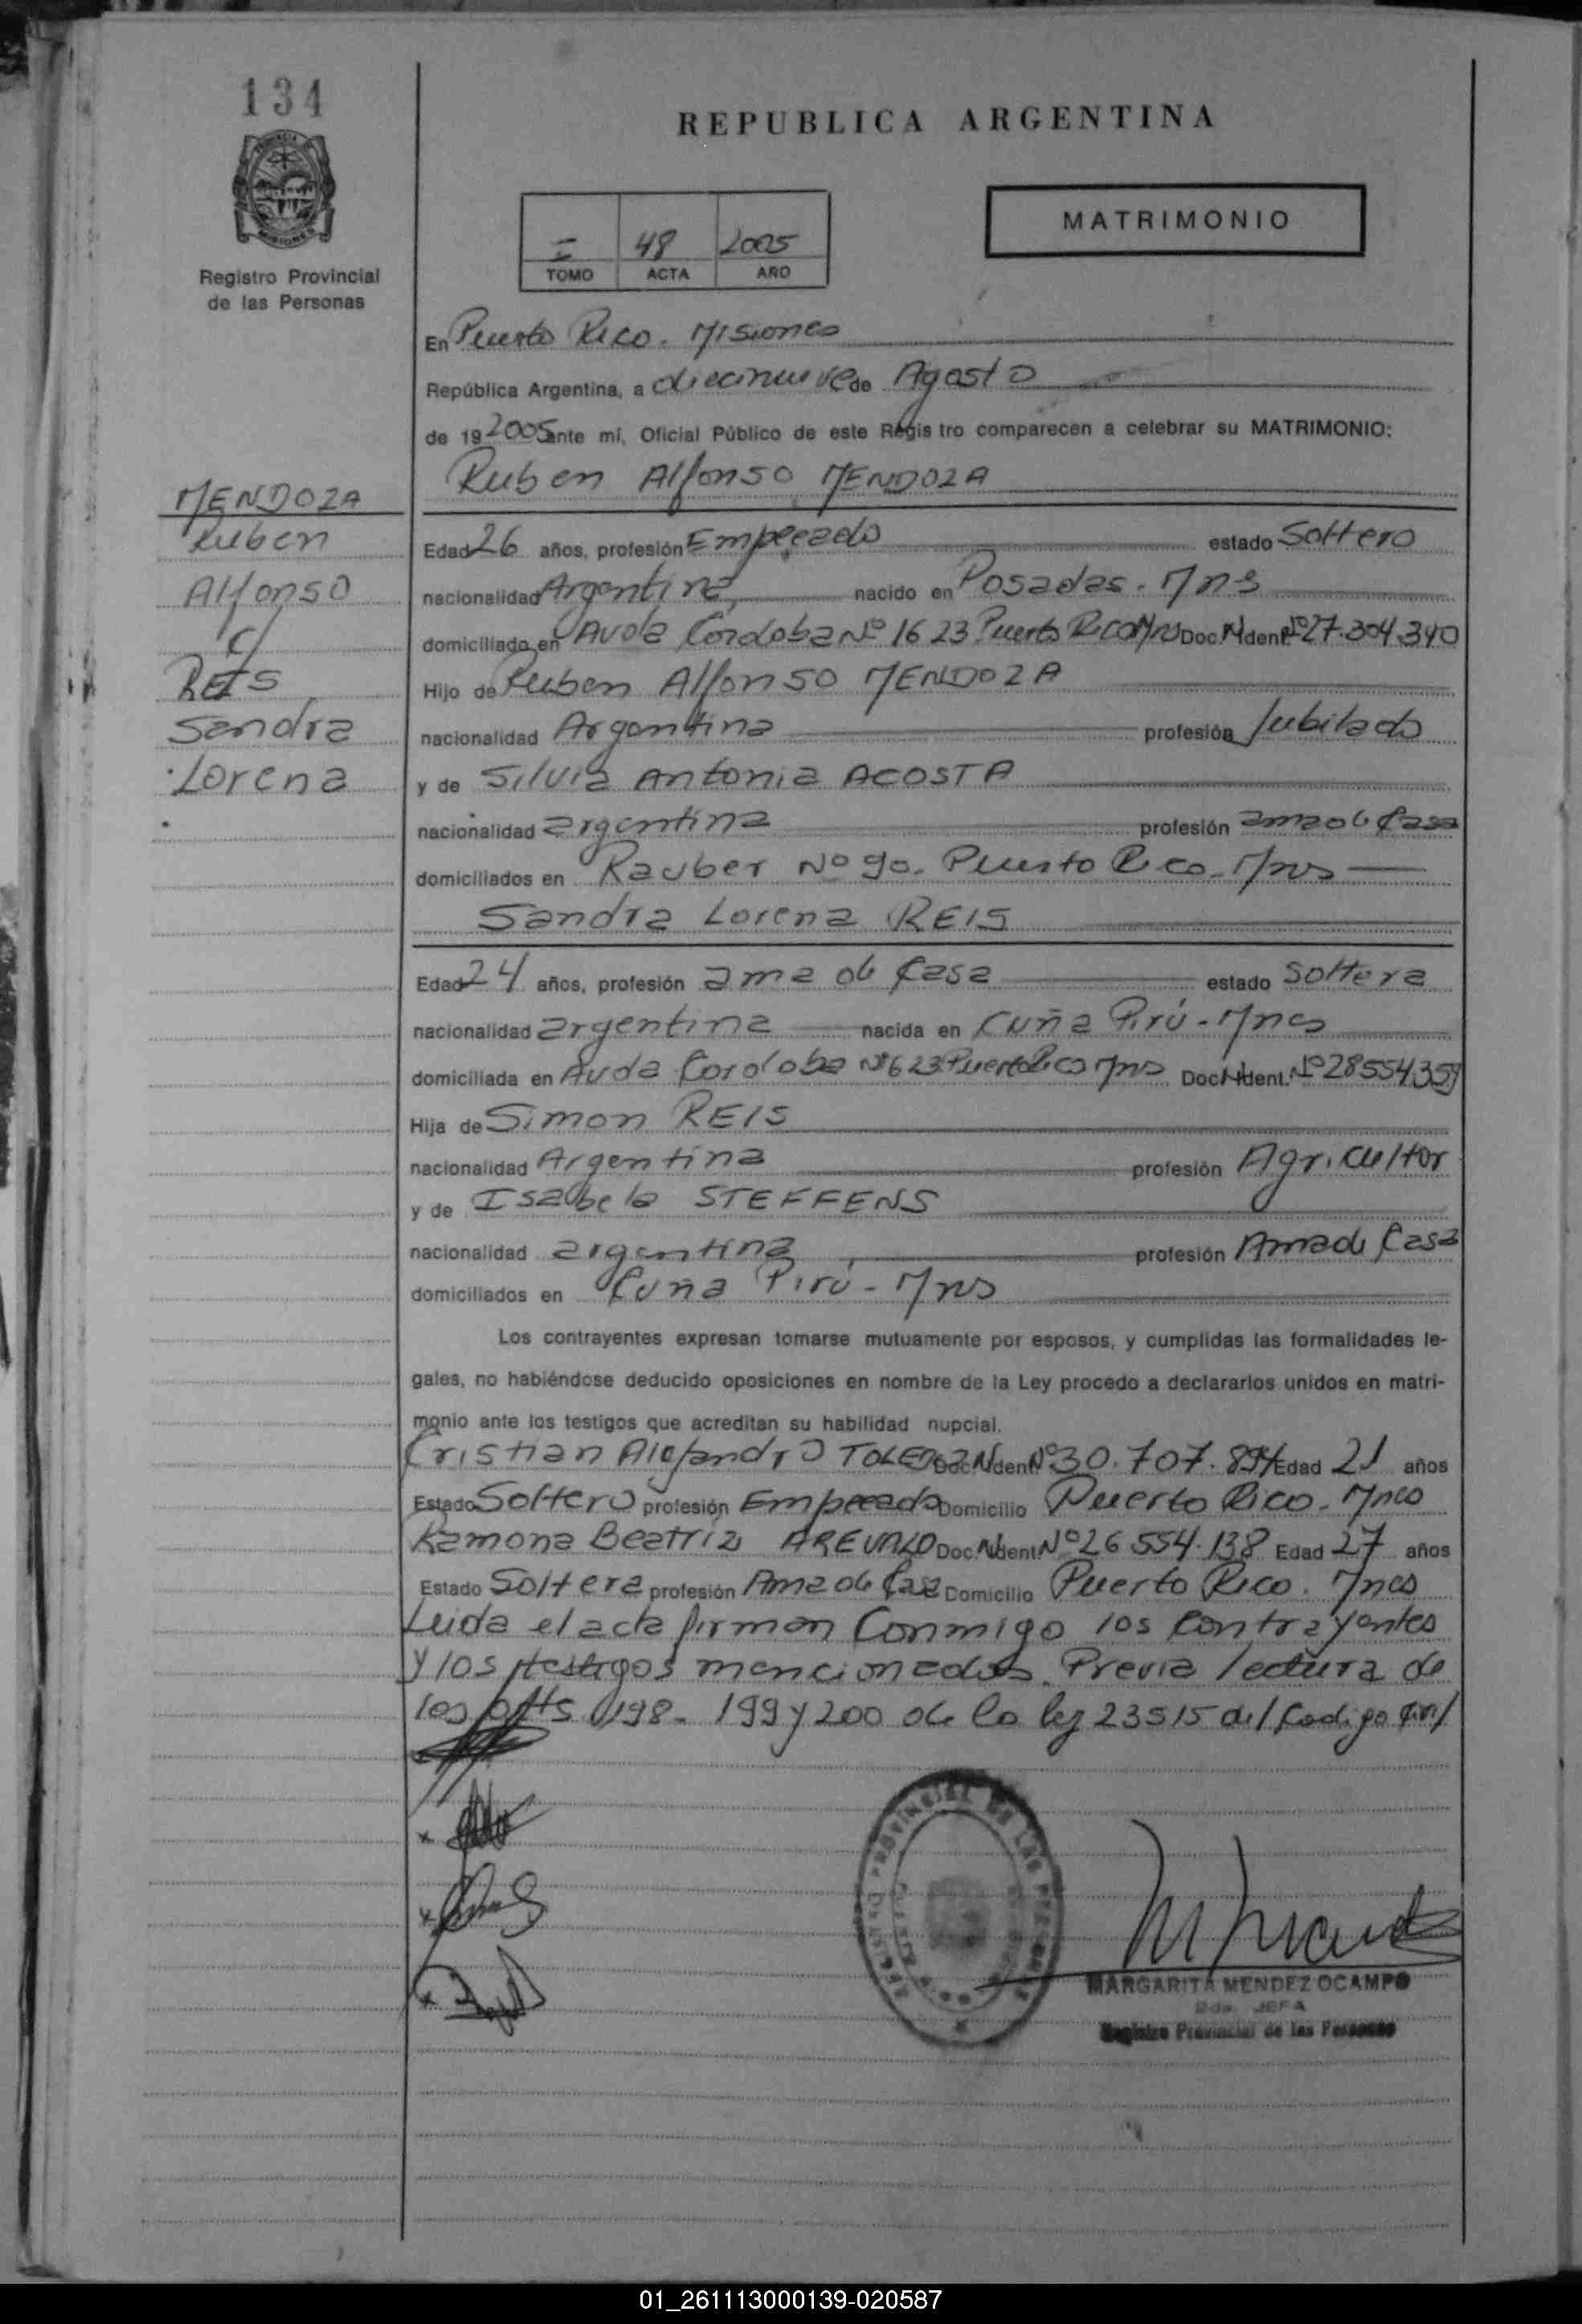 134
REPUBLICA ARGENTINA
MATRIMONIO
I 48 2005
TOMO ACTA AÑO
Registro Provincial
de las Personas
En Puerto Rico. Misiones
República Argentina, a diecinueve de Agosto
de 19 2005 ante mí, Oficial Público de este Regis tro comparecen a celebrar su MATRIMONIO:
Ruben Alfonso MENDOZA
MENDOZA
Ruben
Alfonso
c/
REIS
Sandra
Lorena
Edad 26 años, profesión Empleado estado Soltero
nacionalidad Argentina nacido en Posadas. Mns
domiciliado en Avda Córdoba Nº 1623 Puerto Rico Mns Doc. N Ident. Nº 27.304.340
Hijo de Ruben Alfonso MENDOZA
nacionalidad Argentina profesión Jubilado
y de Silvia Antonia ACOSTA
nacionalidad argentina profesión ama de Casa
domiciliados en Rauber Nº 90. Puerto Rico. Mns
Sandra Lorena REIS
Edad 24 años, profesión ama de Casa estado Soltera
nacionalidad argentina nacida en Cuña Pirú - Mnes
domiciliada en Avda Cordoba Nº 623 Puerto Rico Mns Doc. N Ident. Nº 28554359
Hija de Simon REIS
nacionalidad Argentina profesión Agricultor
y de Isabela STEFFENS
nacionalidad argentina profesión Ama de Casa
domiciliados en Cuña Pirú - Mns
Los contrayentes expresan tomarse mutuamente por esposos, y cumplidas las formalidades le-
gales, no habiéndose deducido oposiciones en nombre de la Ley procedo a declararlos unidos en matri-
monio ante los testigos que acreditan su habilidad nupcial.
Cristian Alejandro TOLEDO Doc. N Ident. Nº 30.707.894 Edad 21 años
Estado Soltero profesión Empleado Domicilio Puerto Rico. Mnes
Ramona Beatriz AREVALO Doc. N Ident Nº 26 554.138 Edad 27 años
Estado Soltera profesión Ama de Casa Domicilio Puerto Rico. Mnes
Leida el acta firman Conmigo los Contrayentes
y los testigos mencionados. Previa lectura de
los arts 198 - 199 y 200 de la ley 23515 del Codigo Civil
MARGARITA MENDEZ OCAMPO
2da. JEFA
Registro Provincial de las Personas
01_261113000139-020587